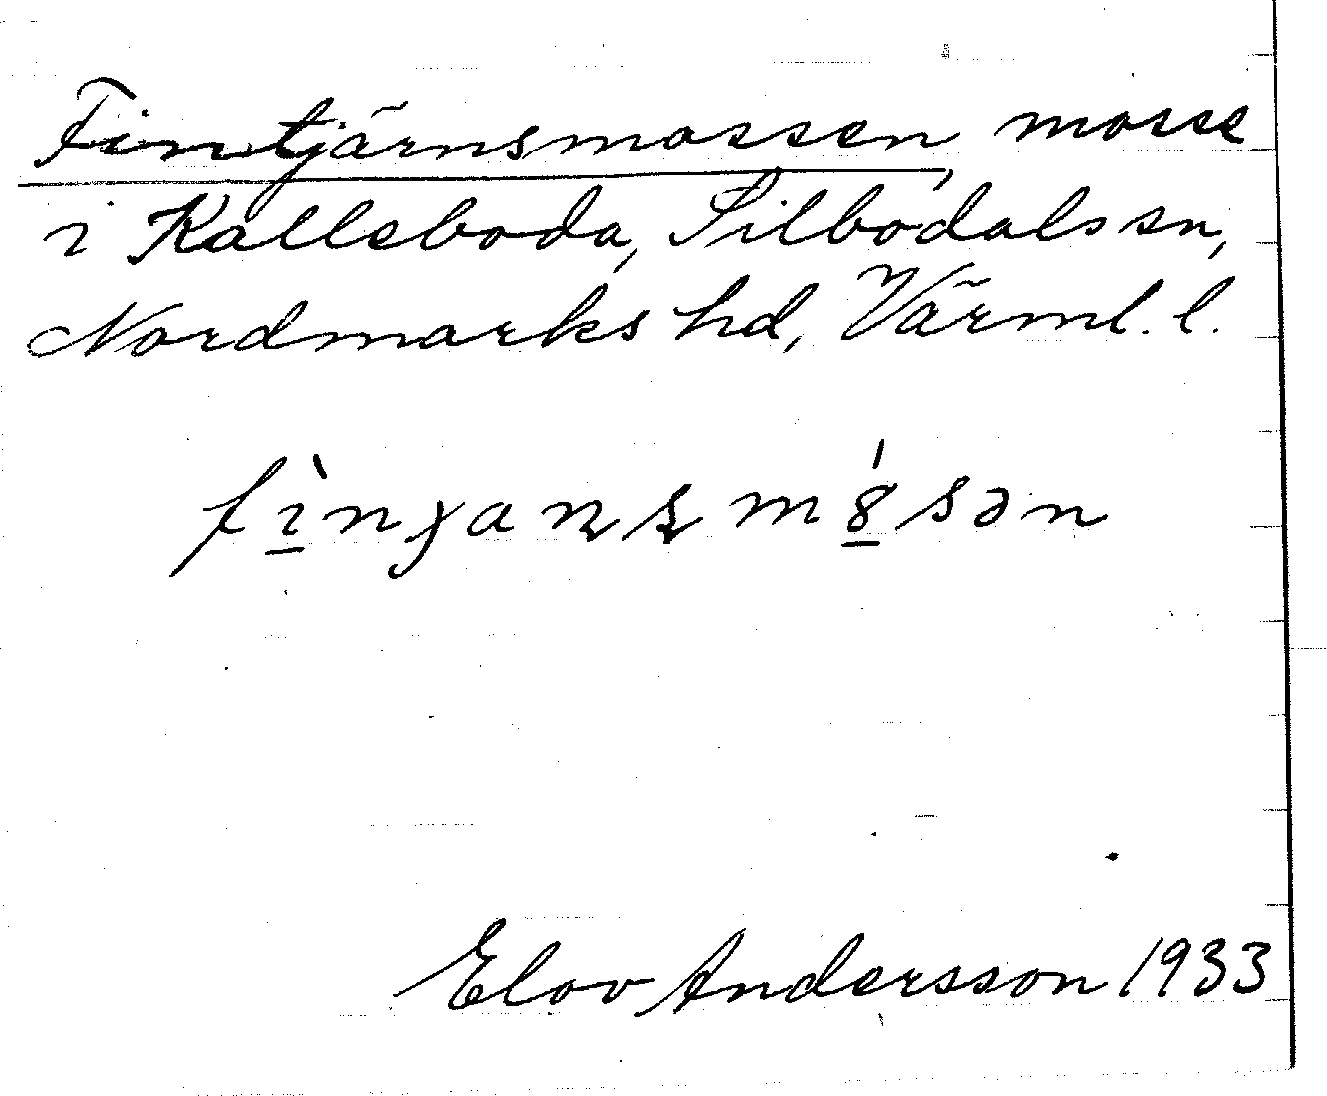 Fintjärnsmossen, mosse
i Kalleboda, Silbodals sn,
Nordmarks hd, Värml. l.
fìnjansmósən
Elov Andersson 1933